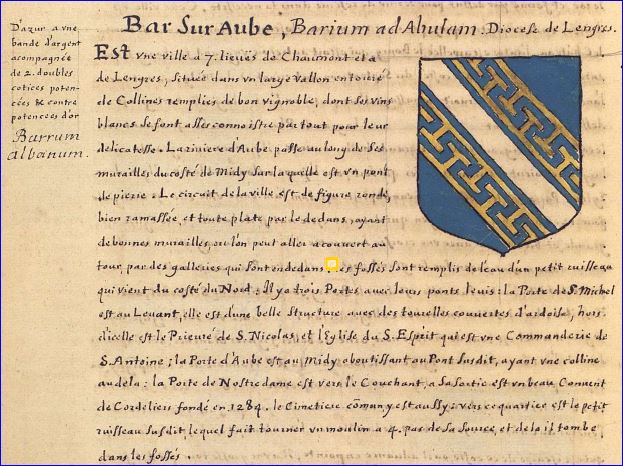 Bar Sur Aube, Barium ad Abulam, Diocese de Lengres.
D'azur a vne
bande d'argent
acompagnée
de 2. doubles
cotices poten-
cées & contre
potencees d'or
Barrum
albanum.
Est vne ville a 7. lieües de Chaumont et a
de Lengres, située dans vn large vallon entouré
de Collines remplies de bon vignoble, dont ses vins
blancs se font asses connoistre par tout pour leur
delicatesse. La riuiere d'Aube passe au long de ses
murailles du costé de Midy sur laquelle est vn pont
de pierre. Le circuit de la ville est de figure ronde,
bien ramassée, et toute plate par le dedans, ayant
de bonnes murailles ou l'on peut aller a couvert au
tour par des galleries qui sont en dedans. les fossés sont remplis de l'eau d'un petit ruisseau
qui vient du costé du Nord. Il y a trois Portes avec leurs ponts leuis: la Porte de S. Michel
est au Leuant, elle est d'une belle structure avec des tourelles couuertes d'ardoise, hors
d'icelle est le Prieuré de S. Nicolas, et l'Eglise du S. Esprit qui est vne Commanderie de
S. Antoine; la Porte d'Aube est au Midy aboutissant au Pont susdit, ayant vne colline
au dela: la Porte de Nostre dame est vers le Couchant, a sa sortie est vn beau Convent
de Cordeliers fondé en 1284. le Cimetiere cōmun y est aussy: vers ce quartier est le petit
ruisseau susdit lequel fait tourner vn moulin a 4. pas de sa source, et de la il tombe
dans les fossés.